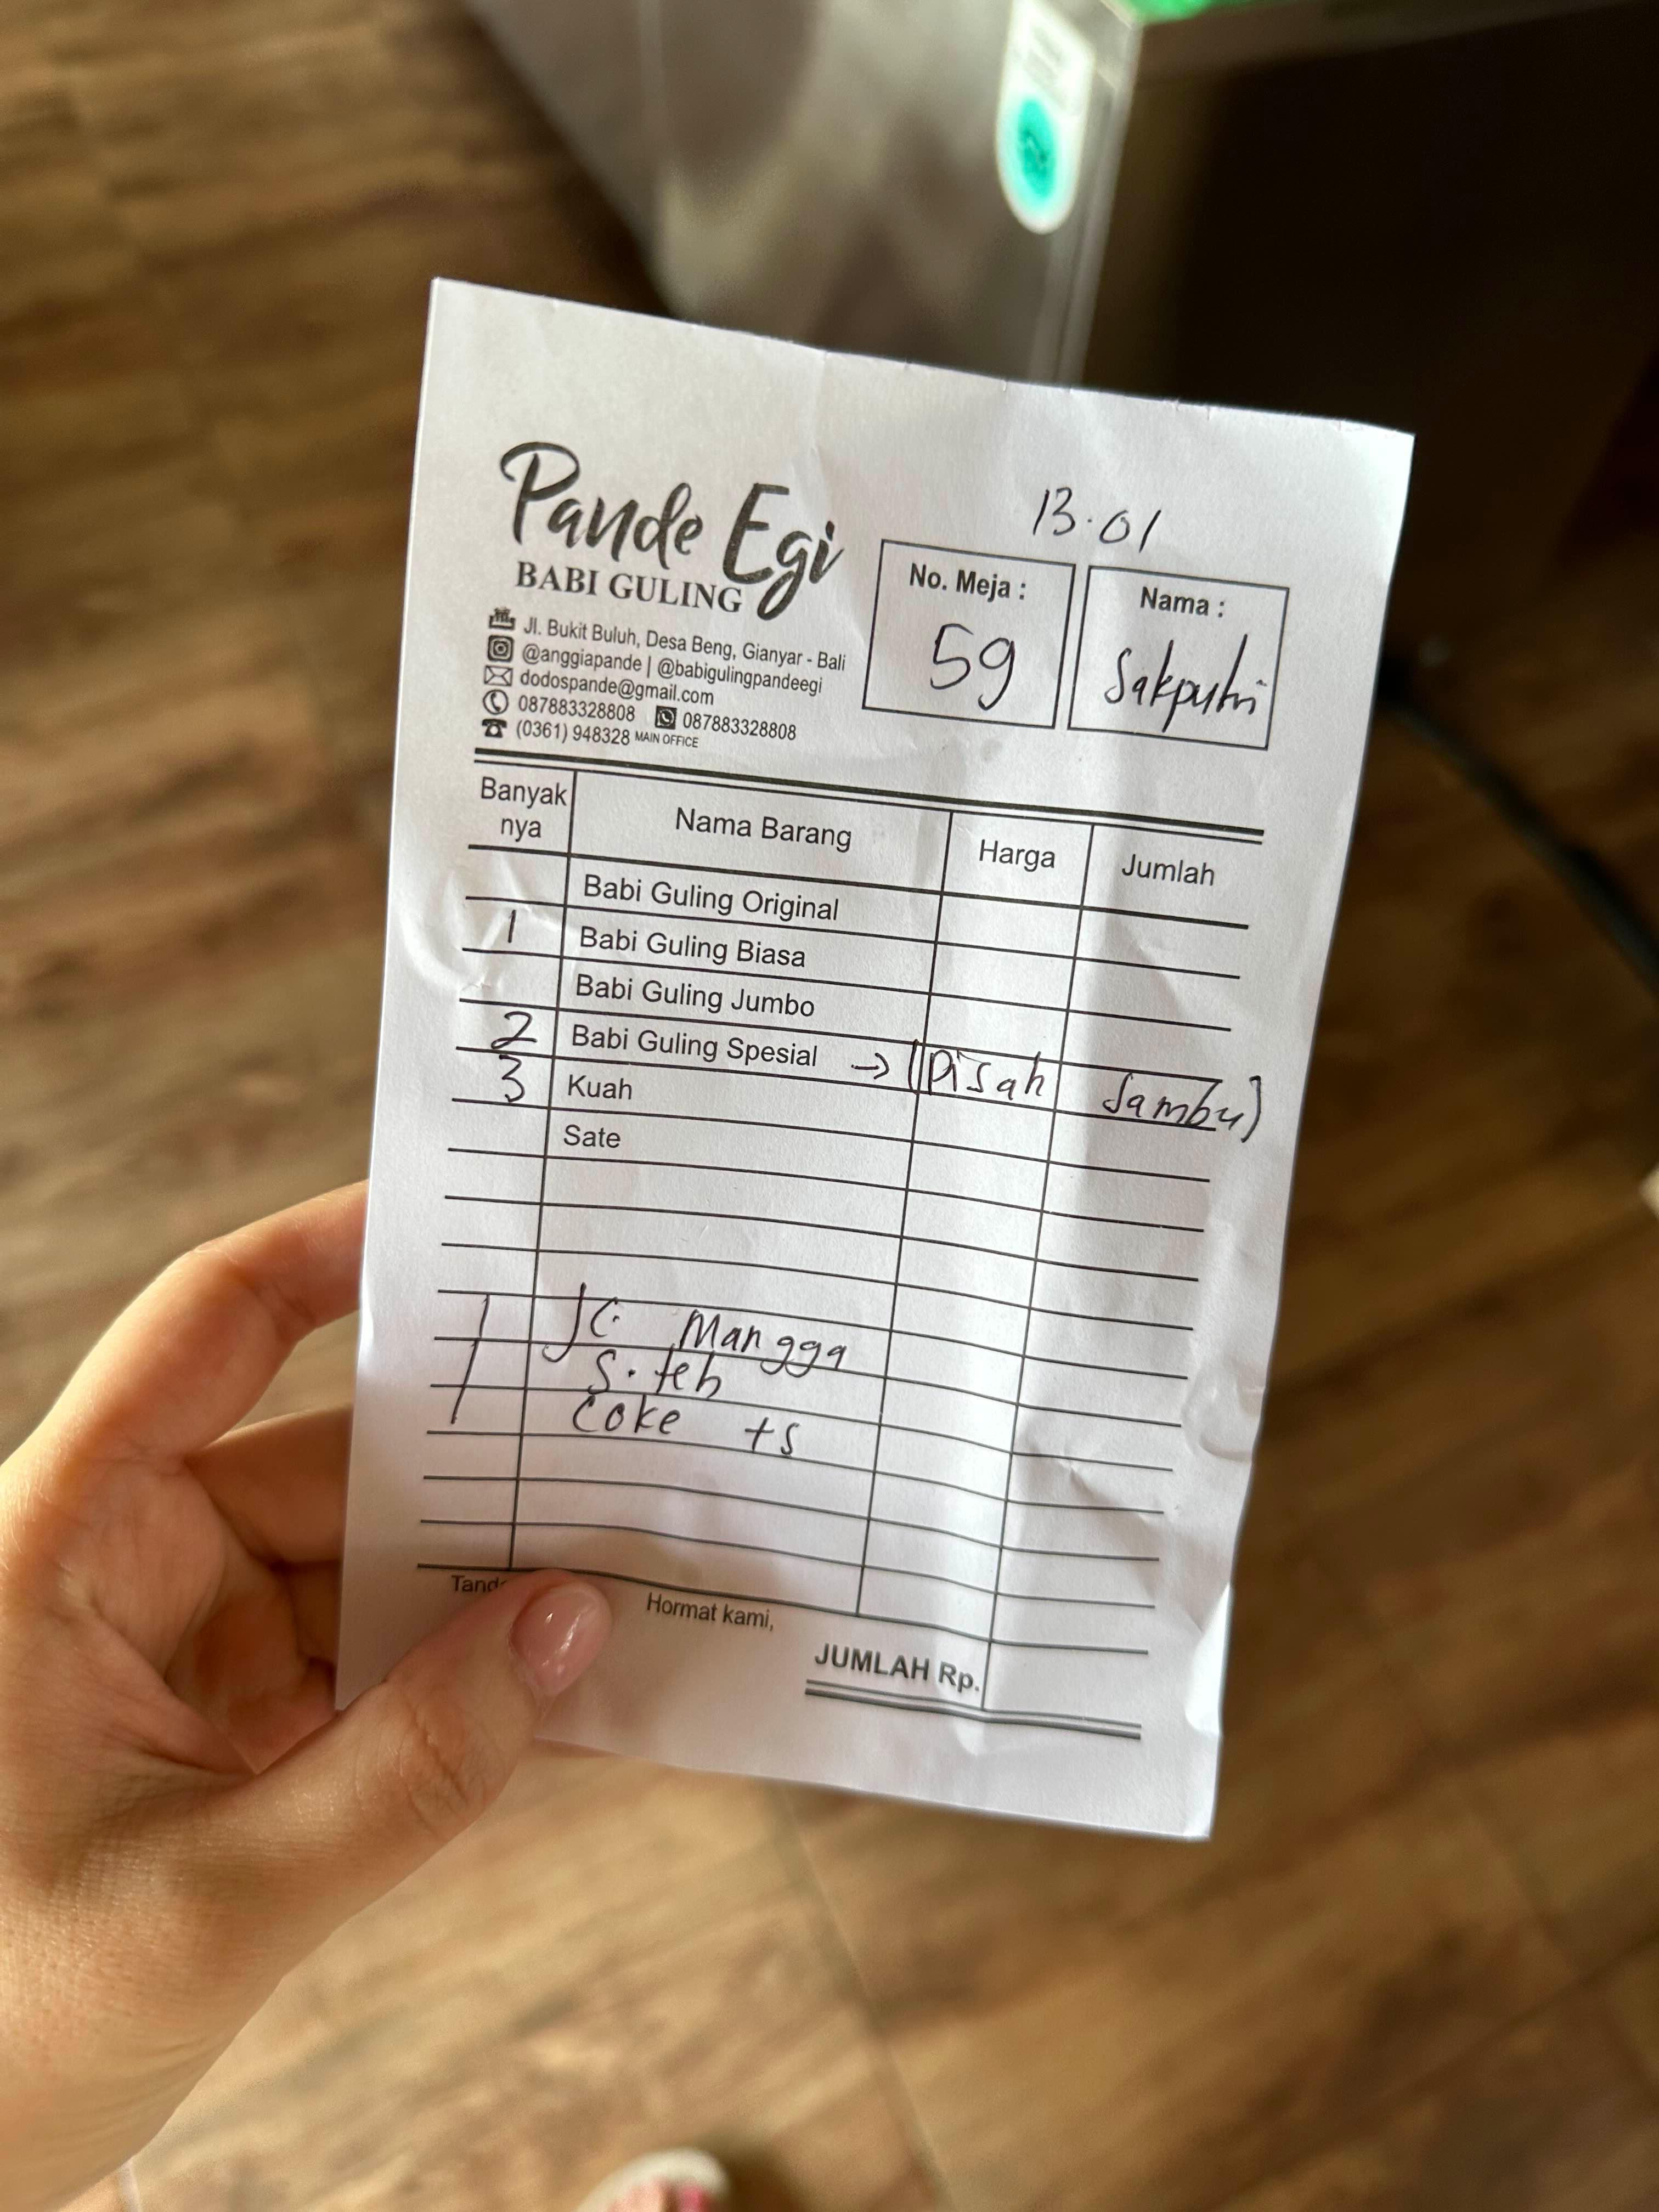 13.01
Pande Egi
BABI GULING
Jl. Bukit Buluh, Desa Beng, Gianyar - Bali
@anggiapande | @babigulingpandeegi
dodospande@gmail.com
087883328808 087883328808
(0361) 948328 MAIN OFFICE
No. Meja :
59
Nama :
Sakputri
Banyak
nya
Nama Barang Harga Jumlah
Babi Guling Original
1 Babi Guling Biasa
Babi Guling Jumbo
2 Babi Guling Spesial → (Pisah Sambu)
3 Kuah
Sate
1 Mangga
1 S. teh
1 Coke + s
Hormat kami,
JUMLAH Rp.